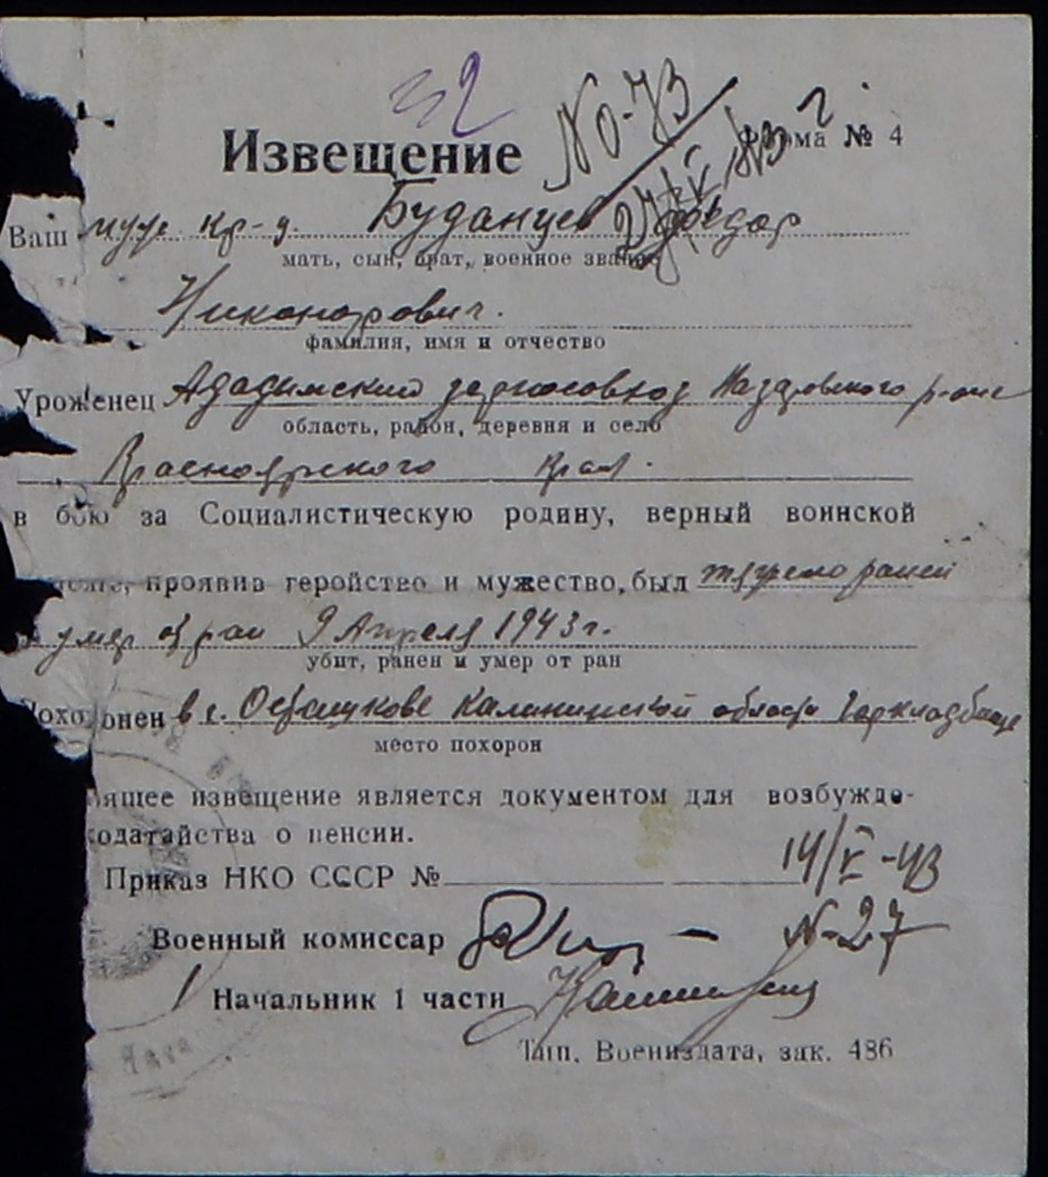 32
№-73
Извещение
Форма № 4
Ваш муж кр-ц. Буданцев Федор
мать, сын, брат, военное звание
Никонорович.
фамилия, имя и отчество
Уроженец Ададимский зерносовхоз Назаровского р-она
область, район, деревня и село
Красноярского края.
в бою за Социалистическую родину, верный воинской
проявив геройство и мужество, был тяжело ранен
умер от ран 9 Апреля 1943 г.
убит, ранен и умер от ран
Похоронен в г. Осташкове Калининской области Горкладбище
место похорон
ящее извещение является документом для возбужде-
ходатайства о пенсии.
14/V-43
Приказ НКО СССР №
Военный комиссар
N-27
Начальник 1 части
Тип. Воениздата, зак. 486